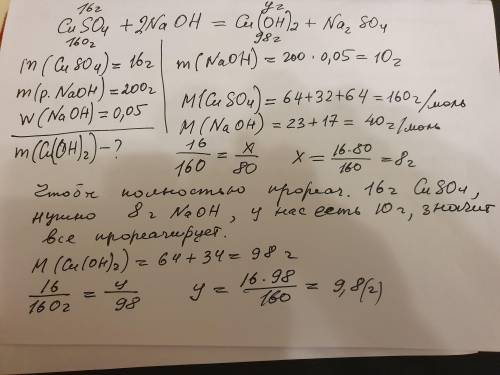 16г yг
CuSO4 + 2NaOH = Cu(OH)2 + Na2SO4
160г 98г
m(CuSO4) = 16г
m(р. NaOH) = 200г
W(NaOH) = 0,05
m(Cu(OH)2) - ?
m(NaOH) = 200 · 0,05 = 10г
M(CuSO4) = 64+32+64 = 160г/моль
M(NaOH) = 23+17 = 40г/моль
16/160 = x/80 x = 16·80/160 = 8г
Чтобы полностью прореаг. 16г CuSO4,
нужно 8г NaOH, у нас есть 10г, значит
все прореагирует.
M(Cu(OH)2) = 64+34 = 98 г
16/160г = y/98 y = 16·98/160 = 9,8(г)